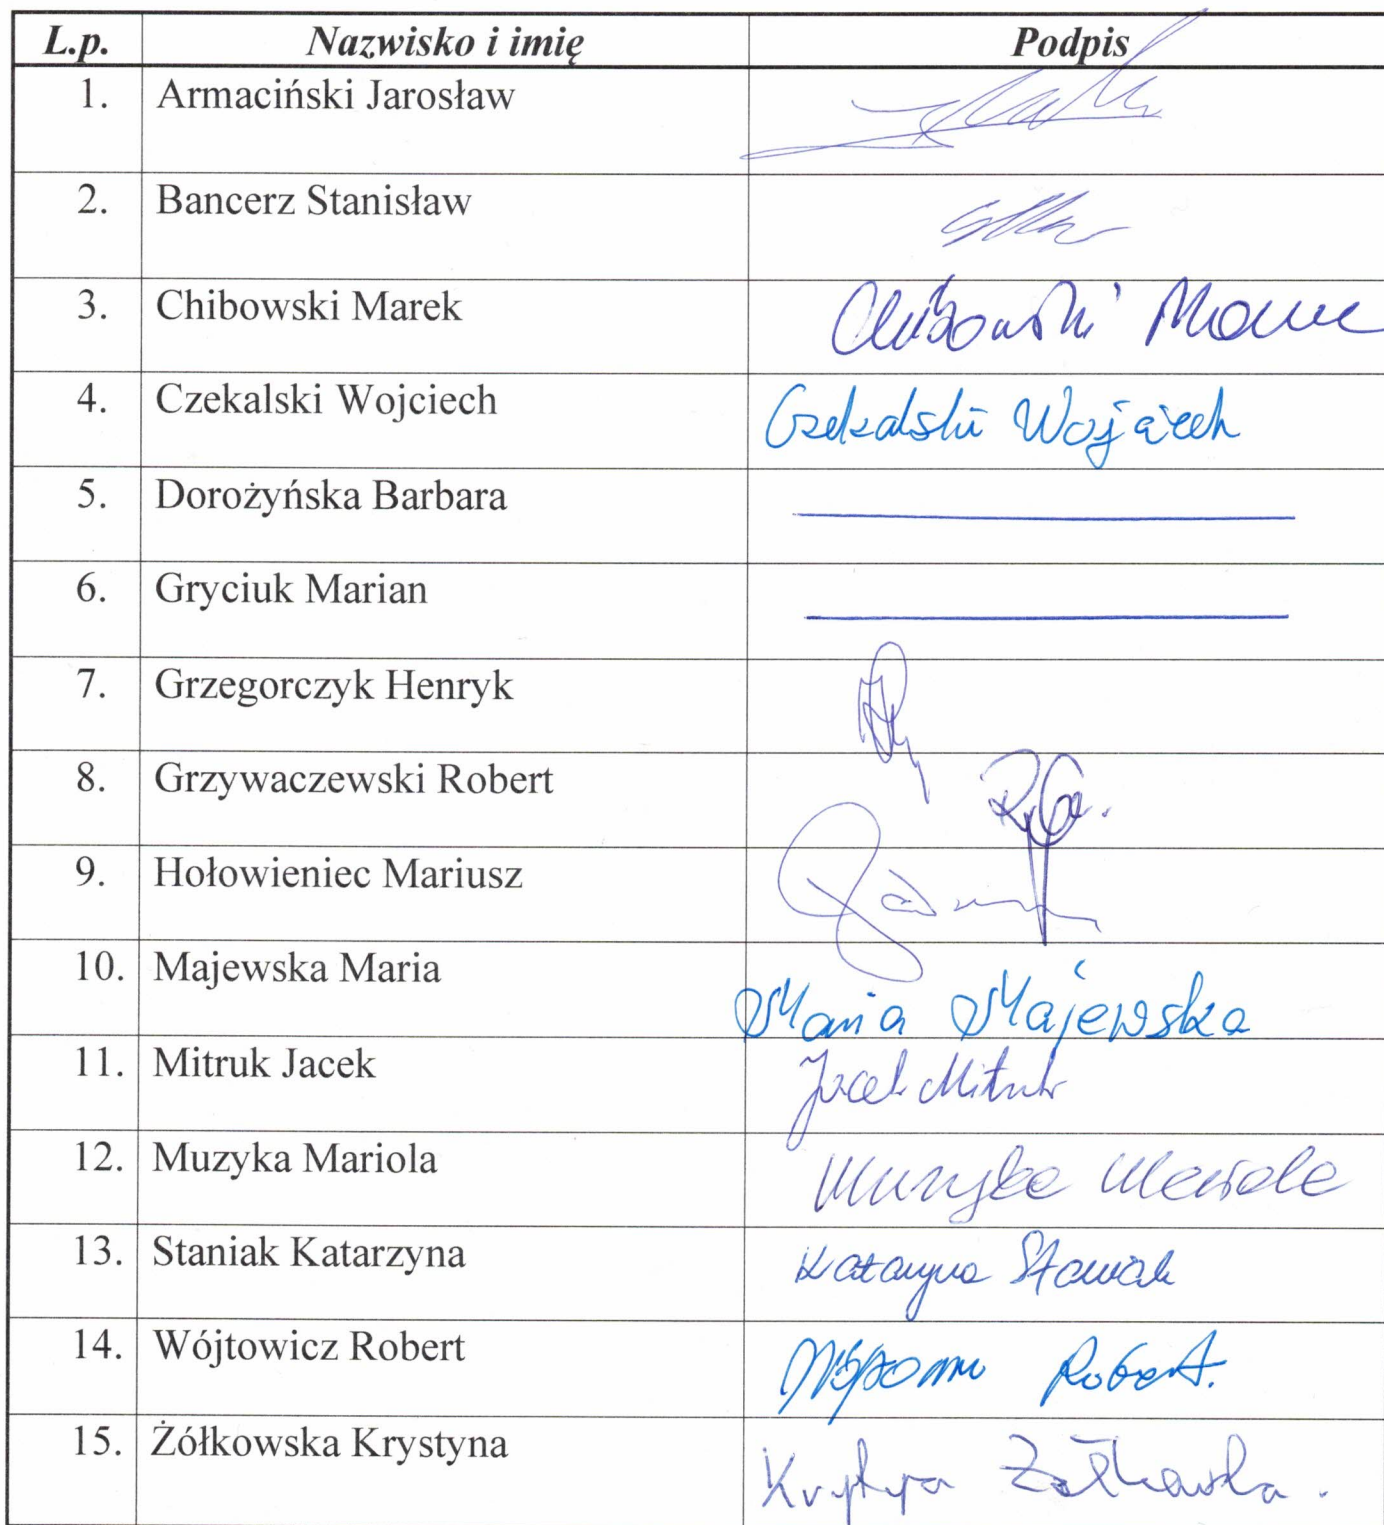 L.p. Nazwisko i imię Podpis
1. Armaciński Jarosław
2. Bancerz Stanisław
3. Chibowski Marek Chibowski Marek
4. Czekalski Wojciech Czekalski Wojciech
5. Dorożyńska Barbara
6. Gryciuk Marian
7. Grzegorczyk Henryk
8. Grzywaczewski Robert
9. Hołowieniec Mariusz
10. Majewska Maria Maria Majewska
11. Mitruk Jacek Jacek Mitruk
12. Muzyka Mariola Muzyka Mariola
13. Staniak Katarzyna Katarzyna Staniak
14. Wójtowicz Robert Robert.
15. Żółkowska Krystyna Krystyna Żółkowska.